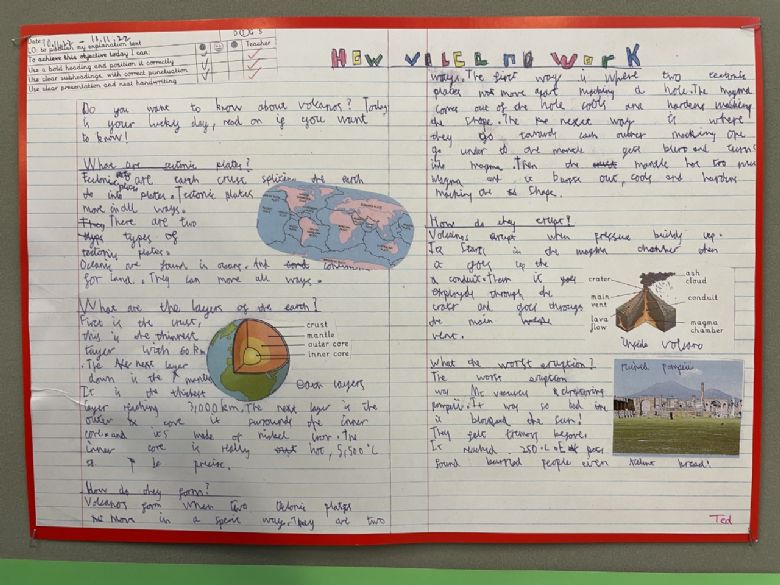 Date: 10.11.22 - 11.11.22
LO: to publish my explanation text
To achieve this objective today I can:
Teacher
Use a bold heading and position it correctly
Use clear subheadings with correct punctuation
Use clear presentation and neat handwriting
How volcano work
Do you want to know about volcanos? Today
is your lucky day, read on if you want
to know!
What are tectonic plates?
are earth crust the earth
into plates. Tectonic plates
move in all ways.
There are two
types of
tectonic plates.
Oceanic are found in ocans. And
for land. They can move all ways.
What are the layers of the earth?
First is the crust,
this is the thinnest
layer with 60 km
. The next layer
down is the mantle
It is the
layer reaching 3,000 km. The next layer is the
outer core it surounds the inner
core and it's made of nickel iron. The
inner core is really hot, 5,500°C
to be precise.
How do they form?
Volcanos form when two plates
move in a way. They are two
crust
mantle
outer core
inner core
Earth layers
ways. The first way is where two tectonic
plates move apart making a hole. The magma
come out of the hole cools and hardens making
the shape. The next way is where
they go towards each other making one
go under to the mantle gets and turns
into magma. Then the mantle has too
magma and it out, cools and hardens
making the shape.
How do they erupt?
Volcanos erupt when pressure builds up.
It starts in the magma chamber then
it goes up the
a conduit. Then it goes
through the
crater and goes through
the main
vent.
crater
main vent
lava flow
ash cloud
conduit
magma chamber
inside volcano
What the worst eruption?
The worst eruption
was Mt vesuvius destroying
pompeii. It was so bad
it blocked the sun!
They felt tremors before
It reached 250°C
found people even bread!
ruined pompeii
Ted